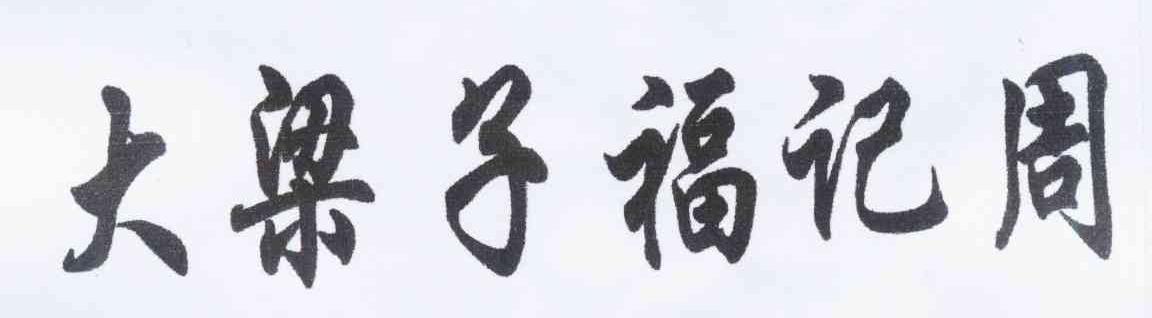 大梁子福记周